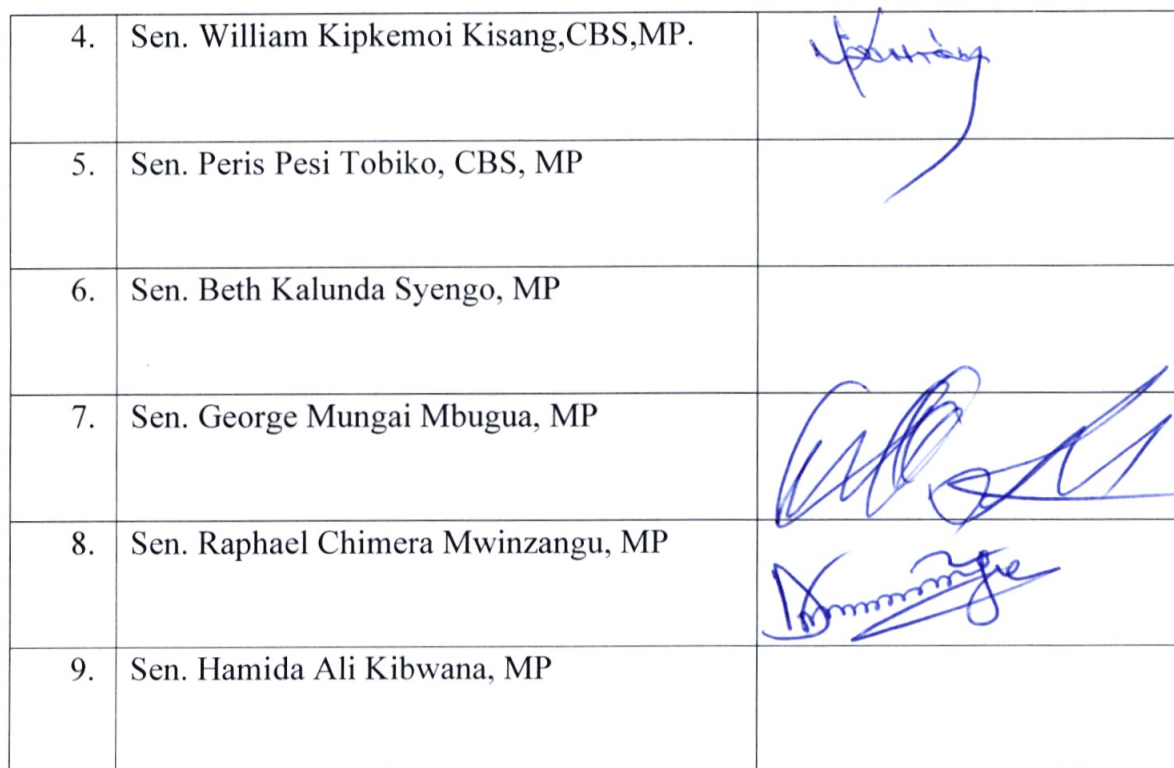 4. Sen. William Kipkemoi Kisang,CBS,MP.
5. Sen. Peris Pesi Tobiko, CBS, MP
6. Sen. Beth Kalunda Syengo, MP
7. Sen. George Mungai Mbugua, MP
8. Sen. Raphael Chimera Mwinzangu, MP
9. Sen. Hamida Ali Kibwana, MP